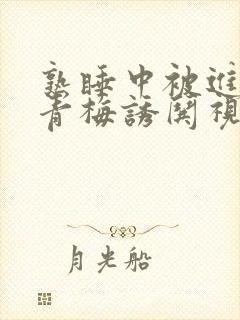 熟睡中被進
青梅誘関視
月光船